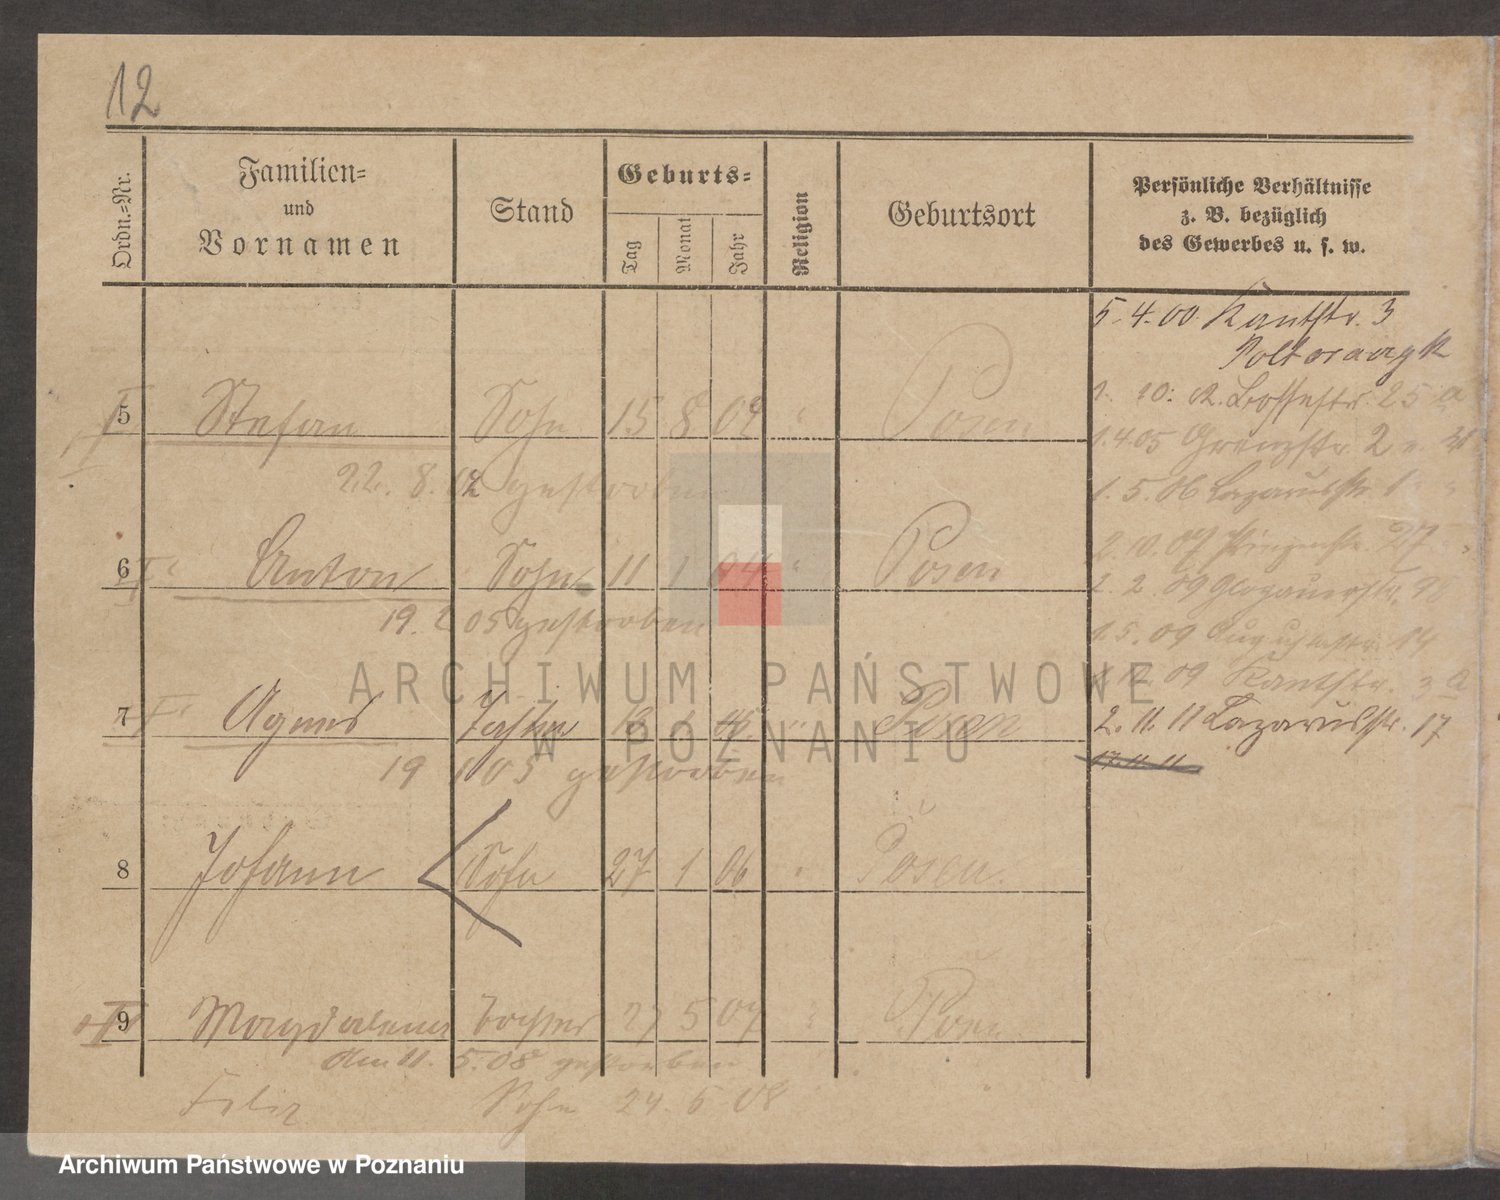 12
Ordn.=Nr.
Familien=
und
Vornamen
Stand
Geburts=
Tag
Monat
Jahr
Religion
Geburtsort
Persönliche Verhältnisse
z. B. bezüglich
des Gewerbes u. s. w.
5.4.00 Kantstr. 3
5 Stefan Sohn 15 8 02 " Posen
22. 8. 02 gestorben
6 Anton Sohn 11 1 04 " Posen
19. 2 05 gestorben
7 Agnes Tochter Posen
19 1 05 gestorben
8 Johann Sohn 27 1 06 " Posen.
9 Magdalena Tochter 27 5 07 " Posen
den 11. 5.08 gestorben
Felix Sohn 24. 5 08
1. 10. 25 a
1.4.05 Grenzstr. 2
1. 5. 06 Lazarusstr. 1
2. 10. 07 Prinzenstr. 27
1. 2. 09 Glogauerstr. 98
1. 5. 09 Augustastr. 14
12 09 Kantstr. 3 a
2. 11. 11 Lazarusstr. 17
17.11.11
ARCHIWUM PAŃSTWOWE
W POZNANIU
Archiwum Państwowe w Poznaniu